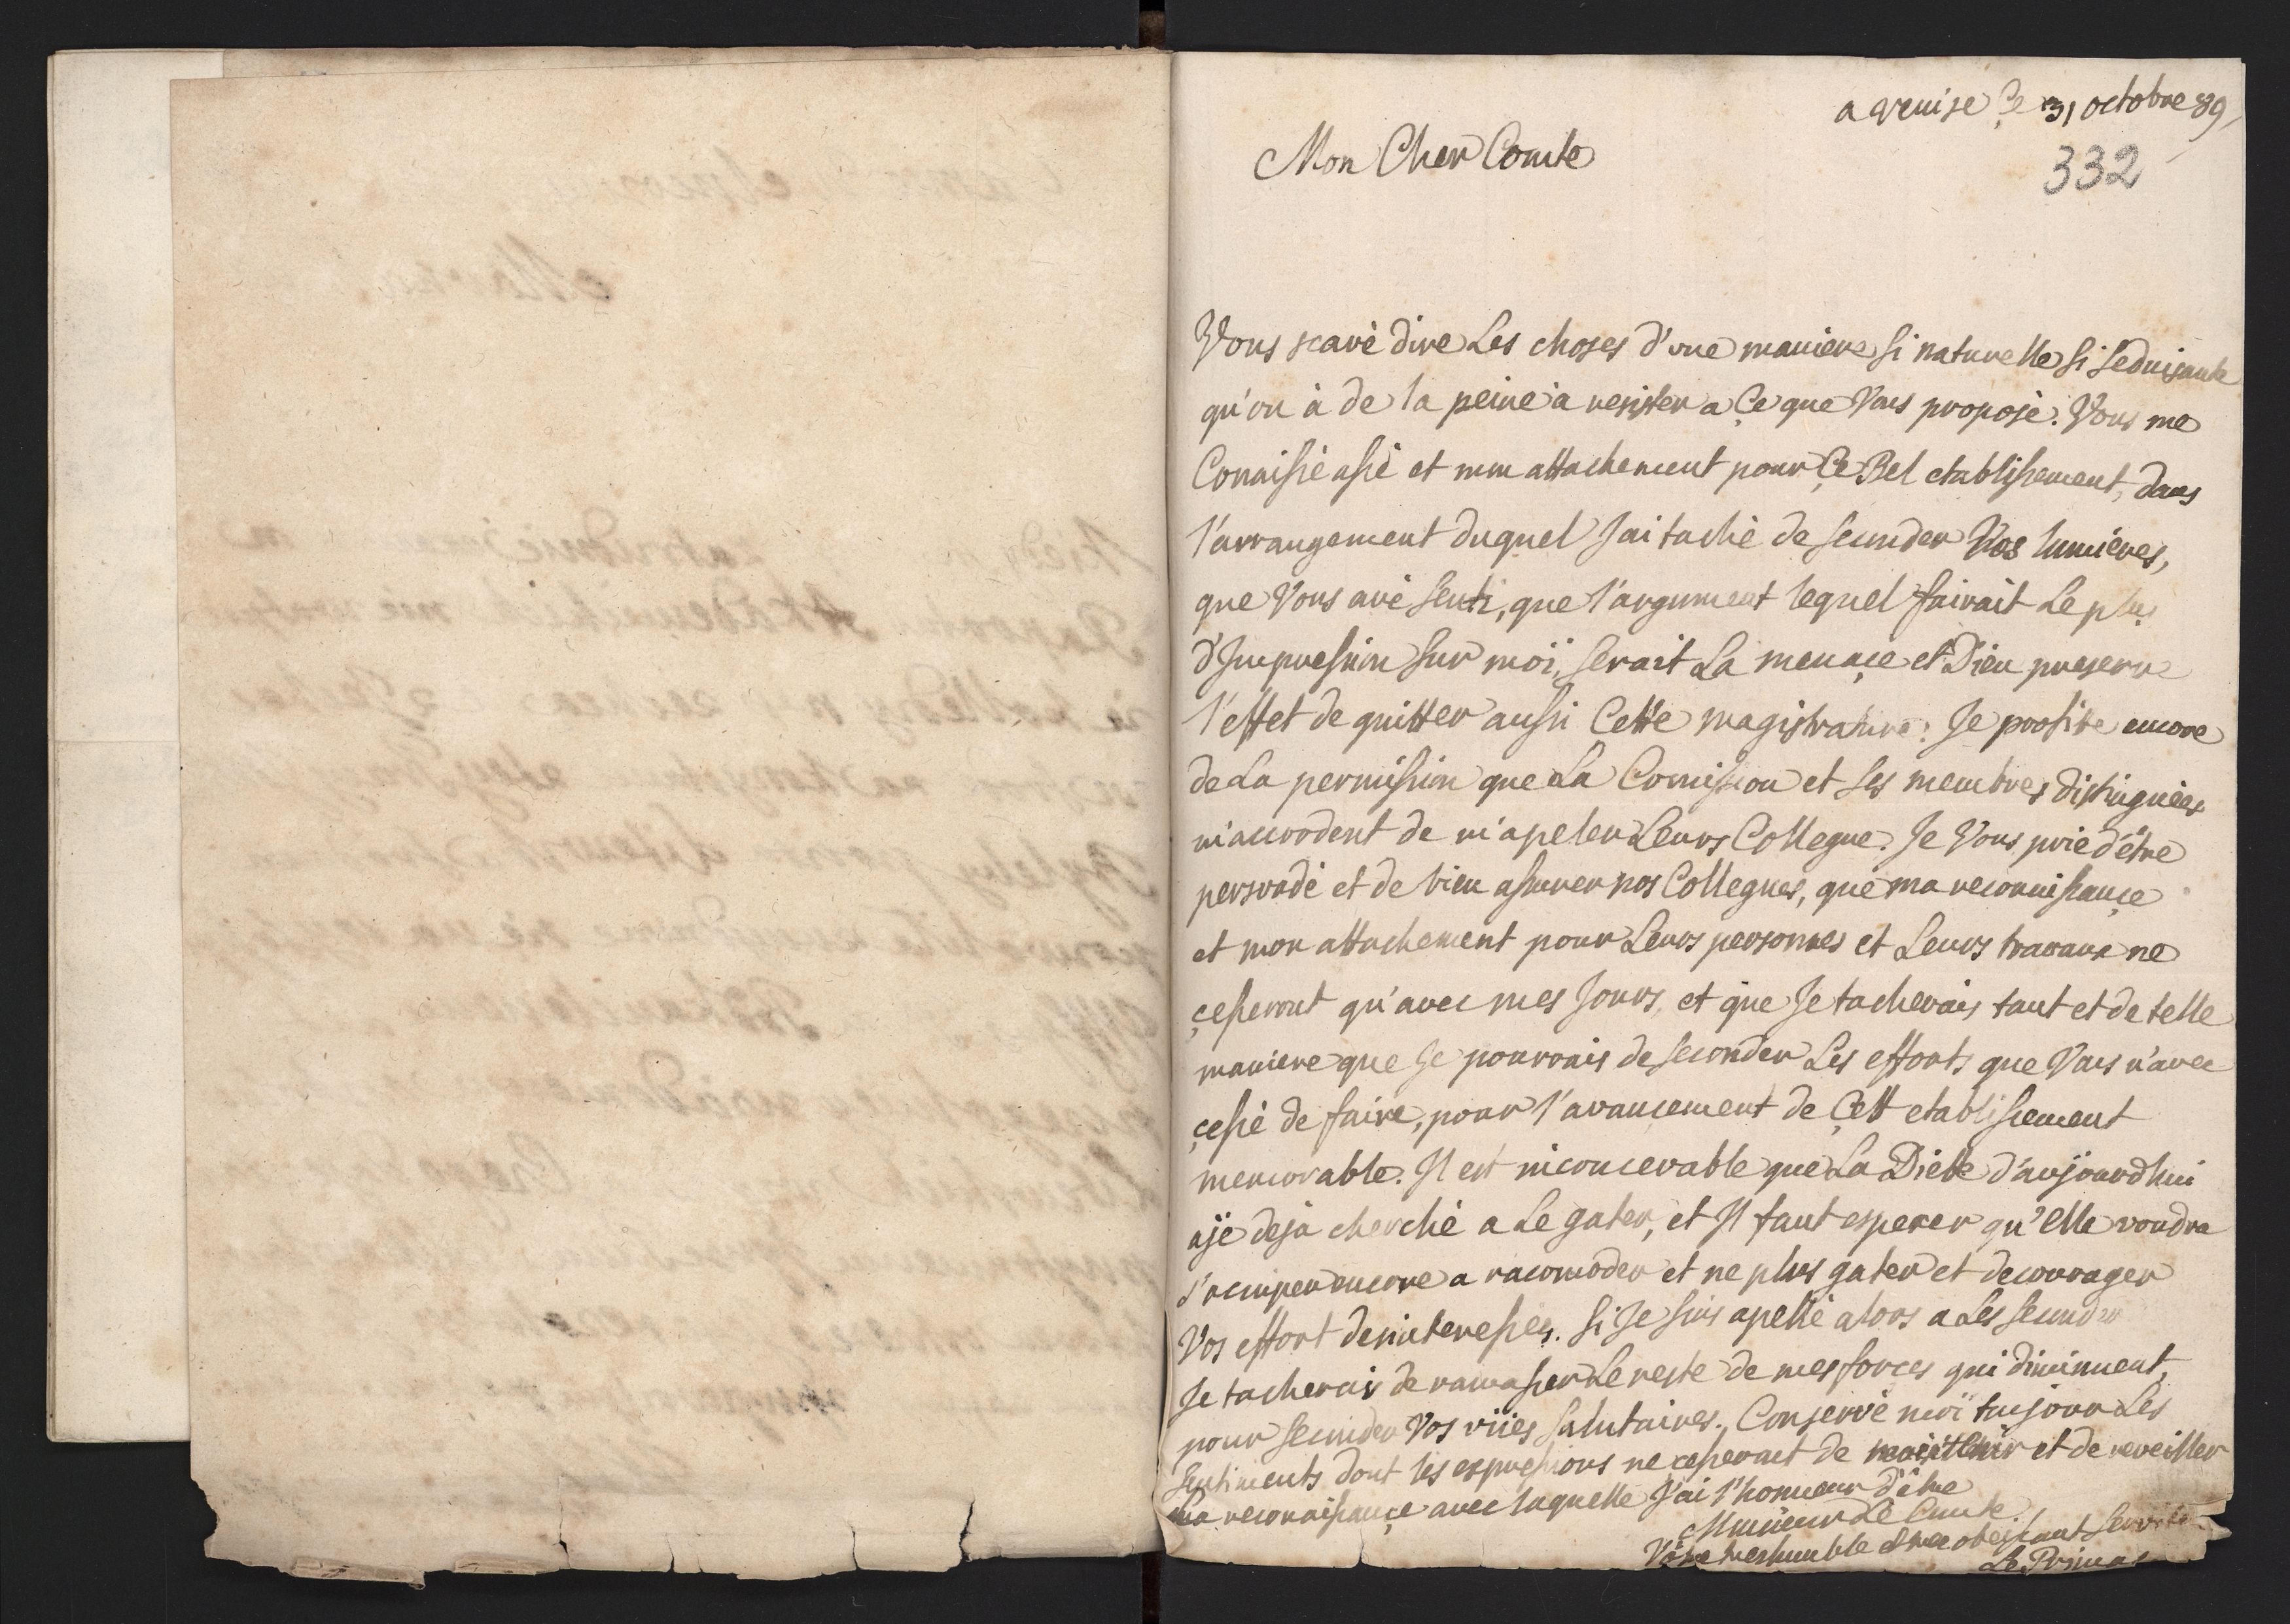 a venise Ce 31 octobre 89
332
Mon Cher Comte
Vous scavè dire Les choses d'une maniere si naturelle si seduisante
qu'on à de la peine à resister a Ce que Vous proposè. Vous me
Connaissè assè et mon attachement pour Ce Bel etablissement, dans
l'arrangement duquel J'ai tachè de seconder Vos lumieres,
que Vous avè senti, que l'argument lequel fairait Le plus
d'Impression sur moï, serait La menaçe et Dieu preserve
l'effet de quitter aussi Cette magistrature. Je profite encore
de La permission que La Comission et ses membres distinguèes
m'accordent de m'apeler Leurs Collegue. Je Vous prie d'être
persvadè et de bien assurer nos Collegues, que ma reconnaissançe
et mon attachement pour Leurs personnes et Leurs travaux ne
çesseront qu'avec mes Jours, et que Je tacherais tant et de telle
maniere que Je pourrais de seconder Les efforts que Vous n'avee
çessè de faire, pour l'avancement de Cett etablissement
memorable. Il est inconcevable que La Diette d'aujourdhui
aÿe deja cherchè a Le gater, et Il faut esperer qu'elle voudra
s'occuper encore a racomoder et ne plus gater et decourager
Vos effort desinteressès. Si Je suis apellè alors a Les seconder
Je tacherais de ramasser Le reste de mes forces qui diminuent,
pour seconder Vos vües salutaires. Conservè moï toujour Les
sentiments dont les expressions ne cesseront de maintenir et de reveiller
La reconaissançe avec laquelle J'ai l'honneur d'être
Monsieur Le Comte
Vôtre tres humble et tres obeissant Servite
Le Primas